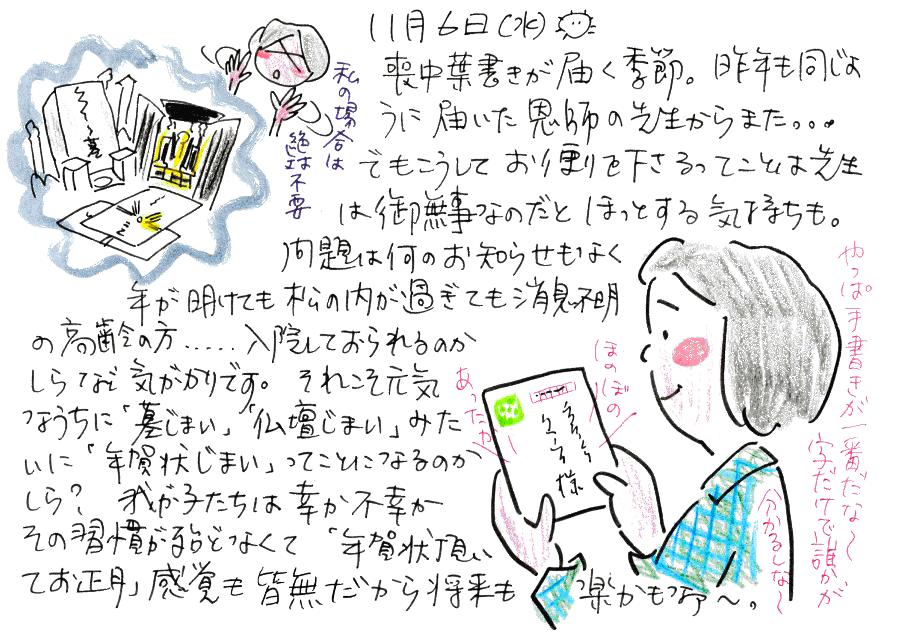 11月6日(水)
喪中葉書きが届く季節。昨年も同じよ
うに届いた恩師の先生からまた。。。
でもこうしてお便りを下さるってことは先生
は御無事なのだとほっとする気持ちも。
問題は何のお知らせもなく
年が明けても松の内が過ぎても消息不明
の高齢の方.....入院しておられるのか
しらなど気がかりです。それこそ元気
なうちに「墓じまい」「仏壇じまい」みた
いに「年賀状じまい」ってことになるのか
しら? 我が子たちは幸か不幸か
その習慣が殆どなくて「年賀状頂い
てお正月」感覚も皆無だから将来も楽かもなぁ〜。
私の場合は
絶対不要
やっぱ手書きが一番だな〜
字だけで誰か
分かるしな〜
ほのぼの
あったか
様